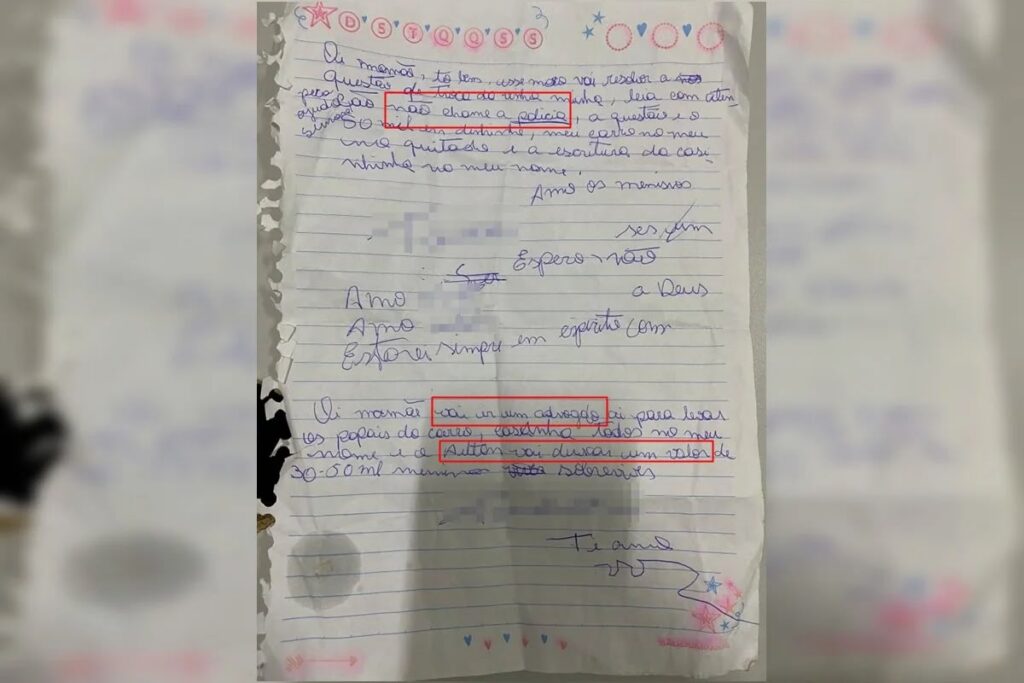 D S T Q Q S S
Oi mamãe, tô bem, esse moço vai resolver a
questão de troca da minha, leia com aten
ção não chame a policia, a questão é o
50 mil em dinheiro, meu carro no meu
nome quitado e a escritura da casi
nhinha no meu nome.
Amo os meninos
Espero não
Amo
a Deus
Amo
Estarei sempre em espirito com
Oi mamãe vai ir um advogdo ai para levar
os papais do carro, casinha todos no meu
nome e o Ailton vai deixar um valor de
30-50 ml
Te amo